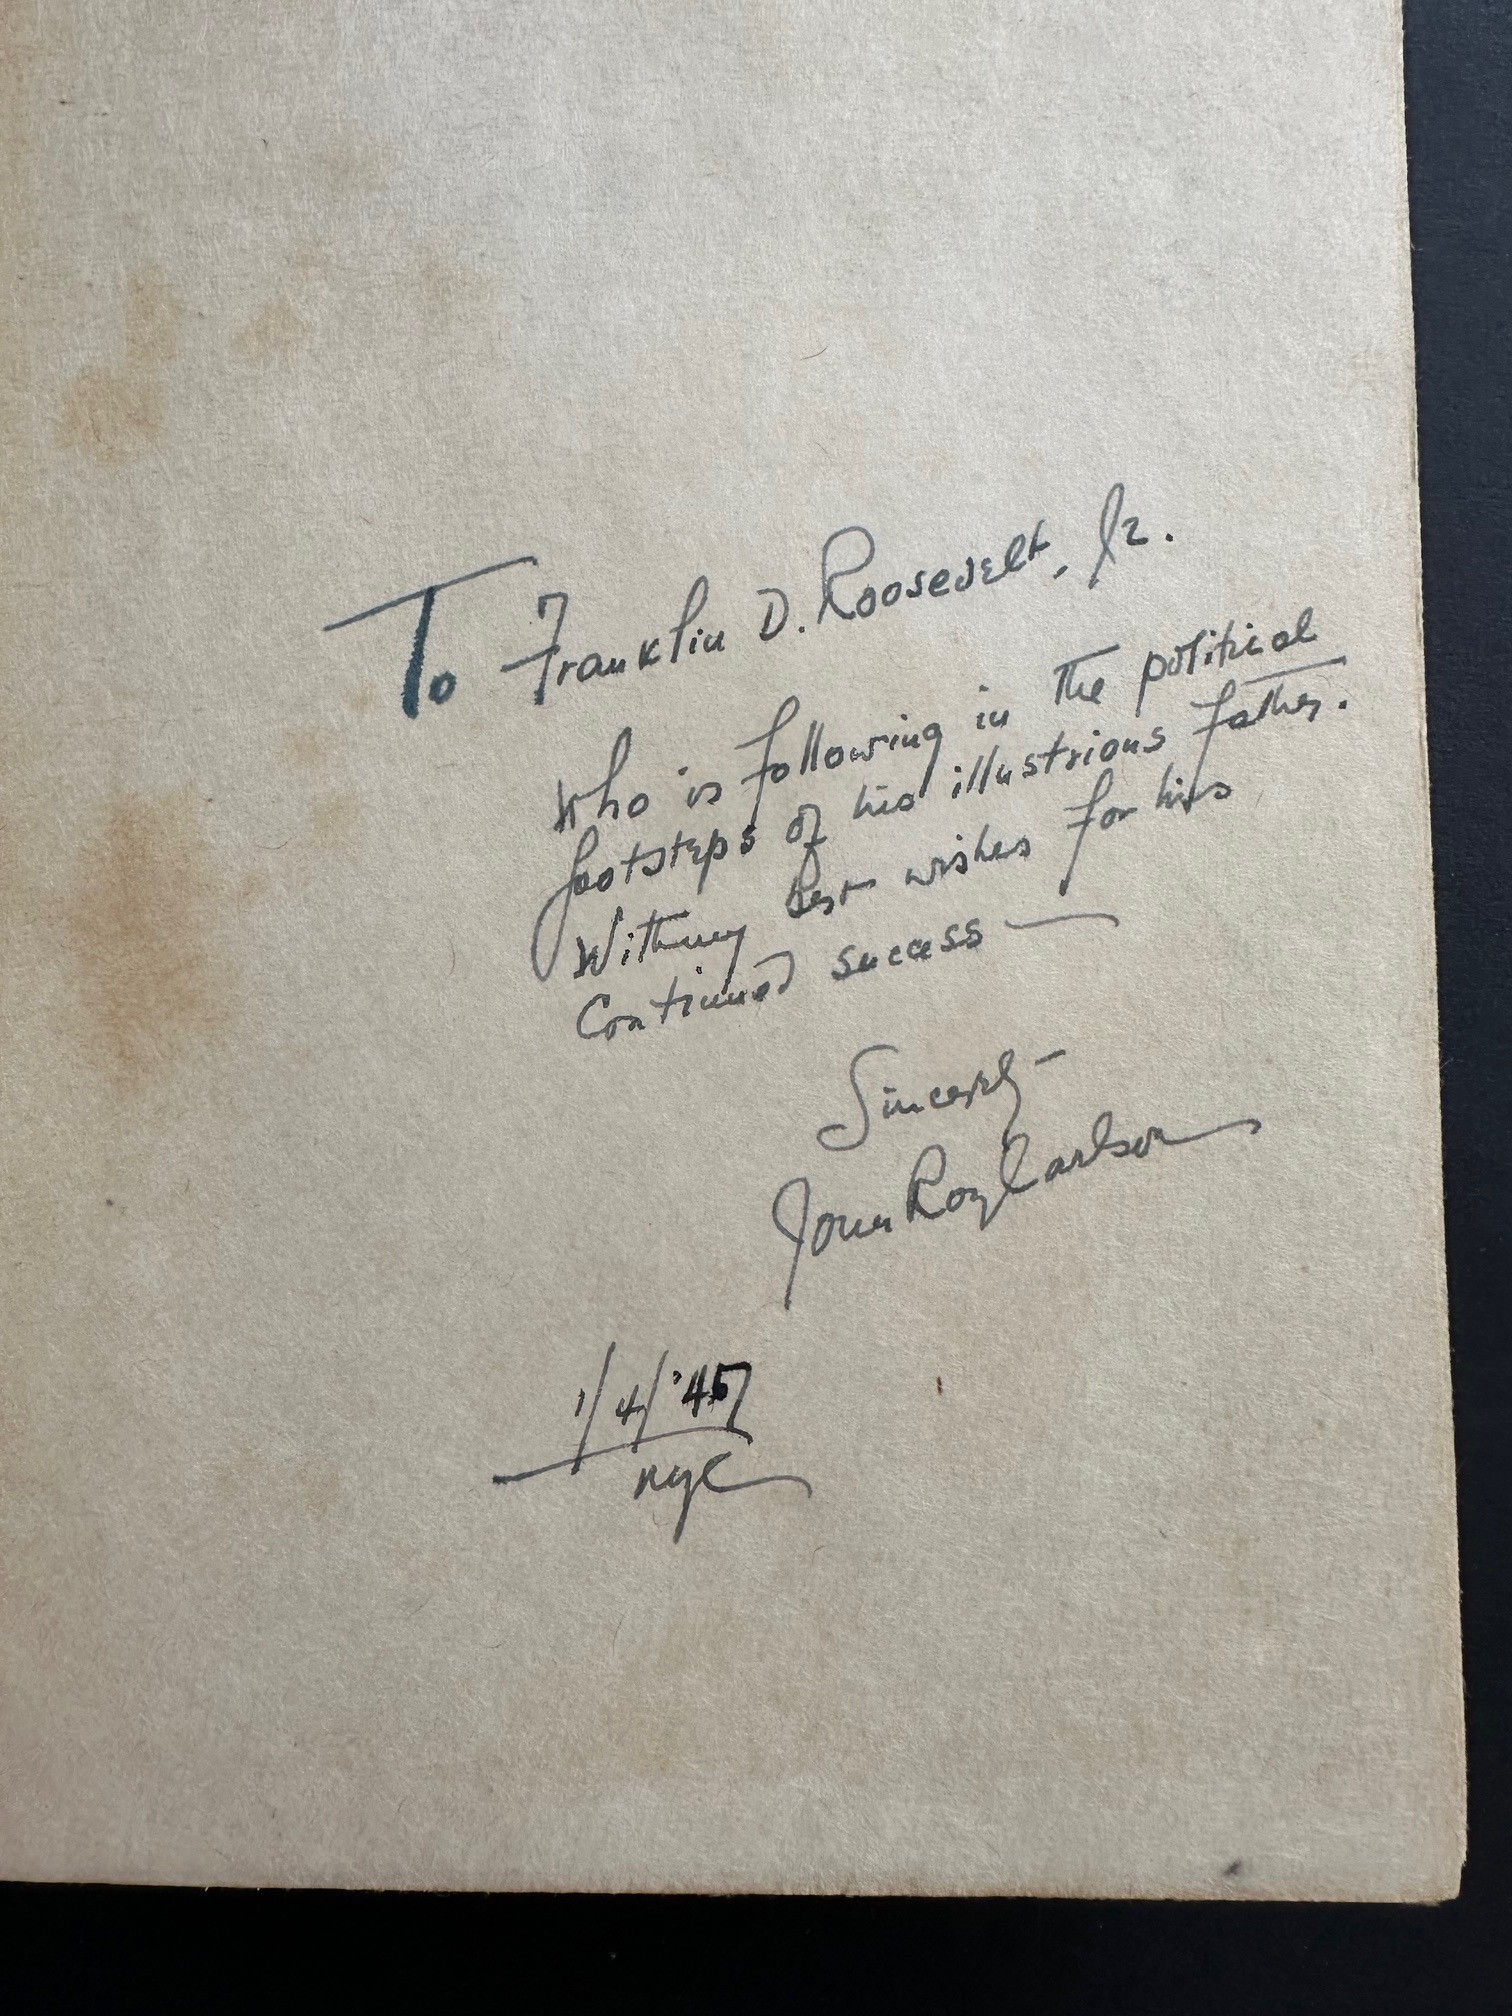 To Franklin D. Roosevelt, Jr.
Who is following in the political
footsteps of his illustrious father.
With my best wishes for his
Continued success —
Sincerely —
John Roy Carlson
1/4/'47
NYC